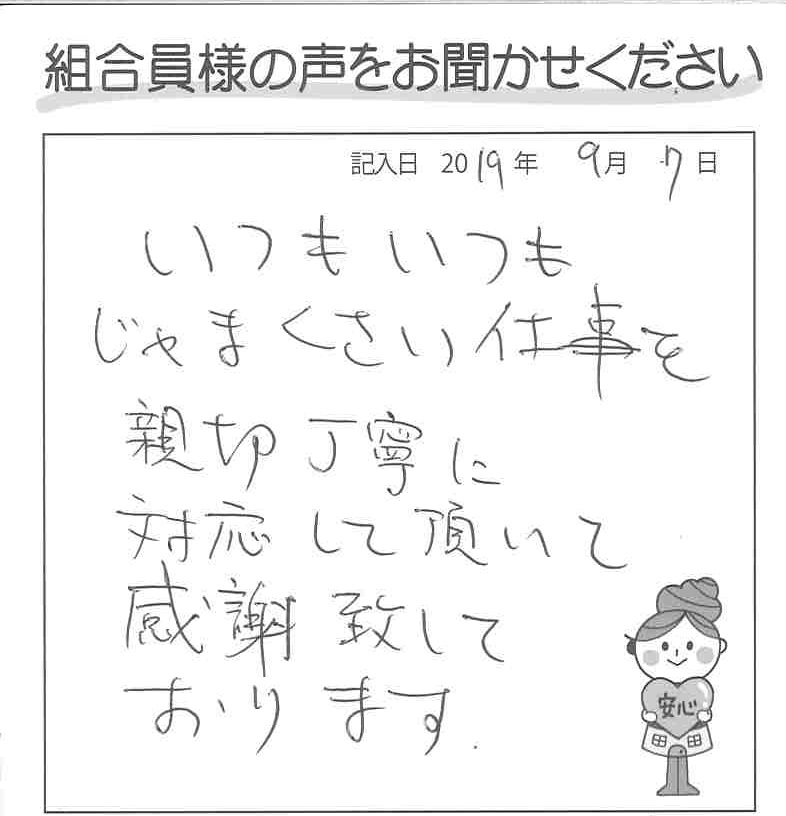 組合員様の声をお聞かせください
記入日 2019年 9月 7日
いつもいつも
じゃまくさい仕事を
親切丁寧に
対応して頂いて
感謝致して
おります.
安心